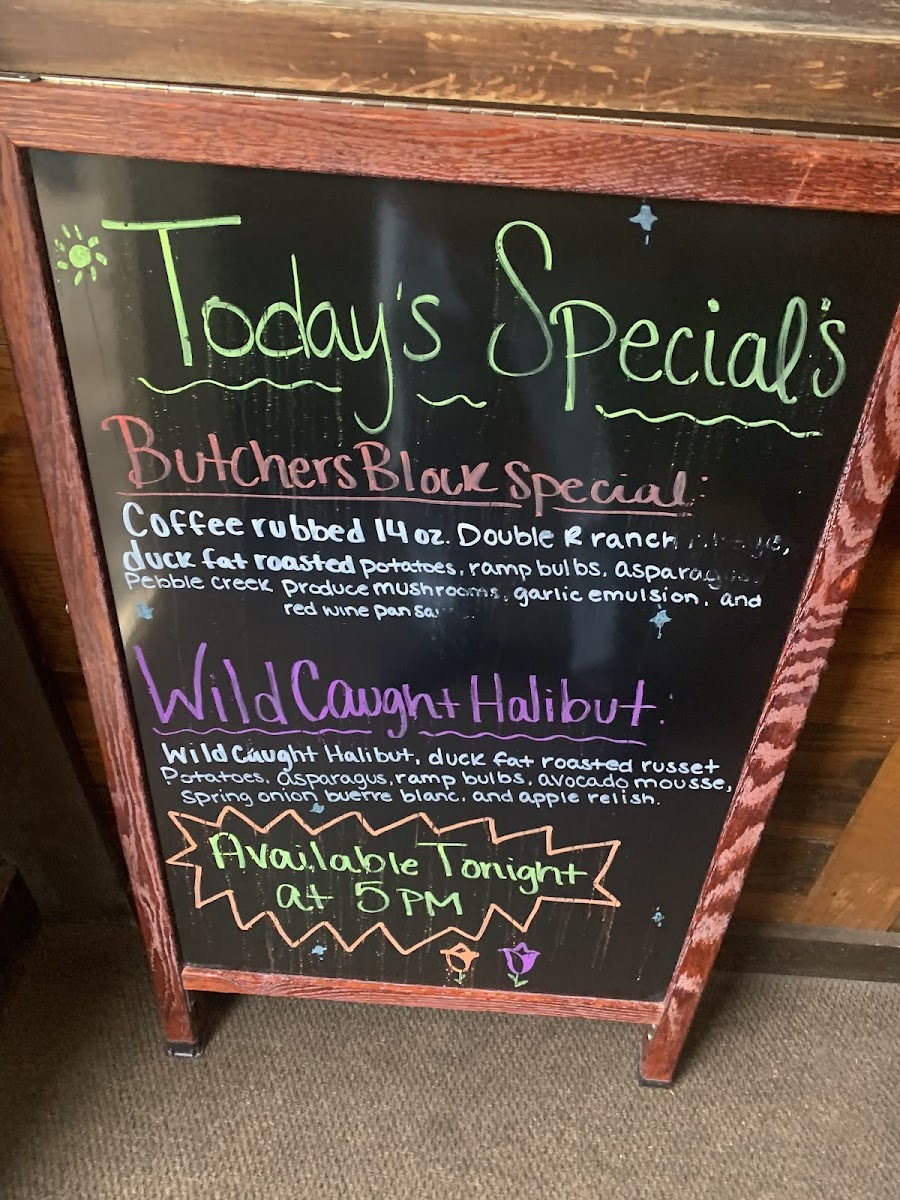 Today's Special's
Butchers Block Special:
Coffee rubbed 14 oz. Double R ranch
duck fat roasted potatoes, ramp bulbs, asparagus
Pebble creek produce mushrooms, garlic emulsion, and
red wine pan
Wild Caught Halibut:
Wild Caught Halibut, duck fat roasted russet
Potatoes, asparagus, ramp bulbs, avocado mousse,
Spring onion buerre blanc, and apple relish.
Available Tonight
at 5 PM